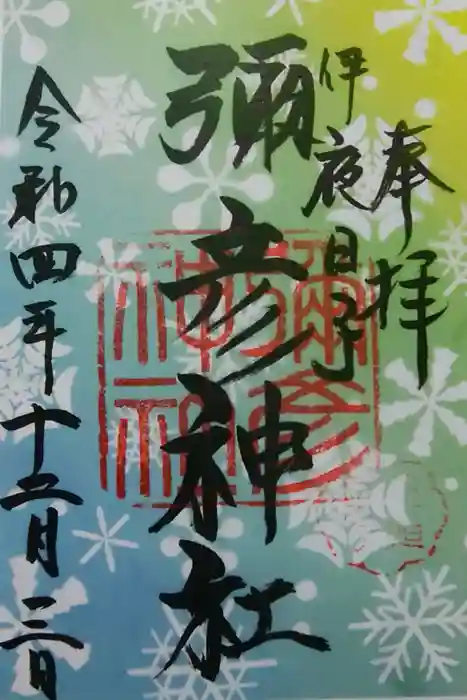 奉拝
伊夜日子
彌彦神社
令和四年十二月三日
彌彦神社